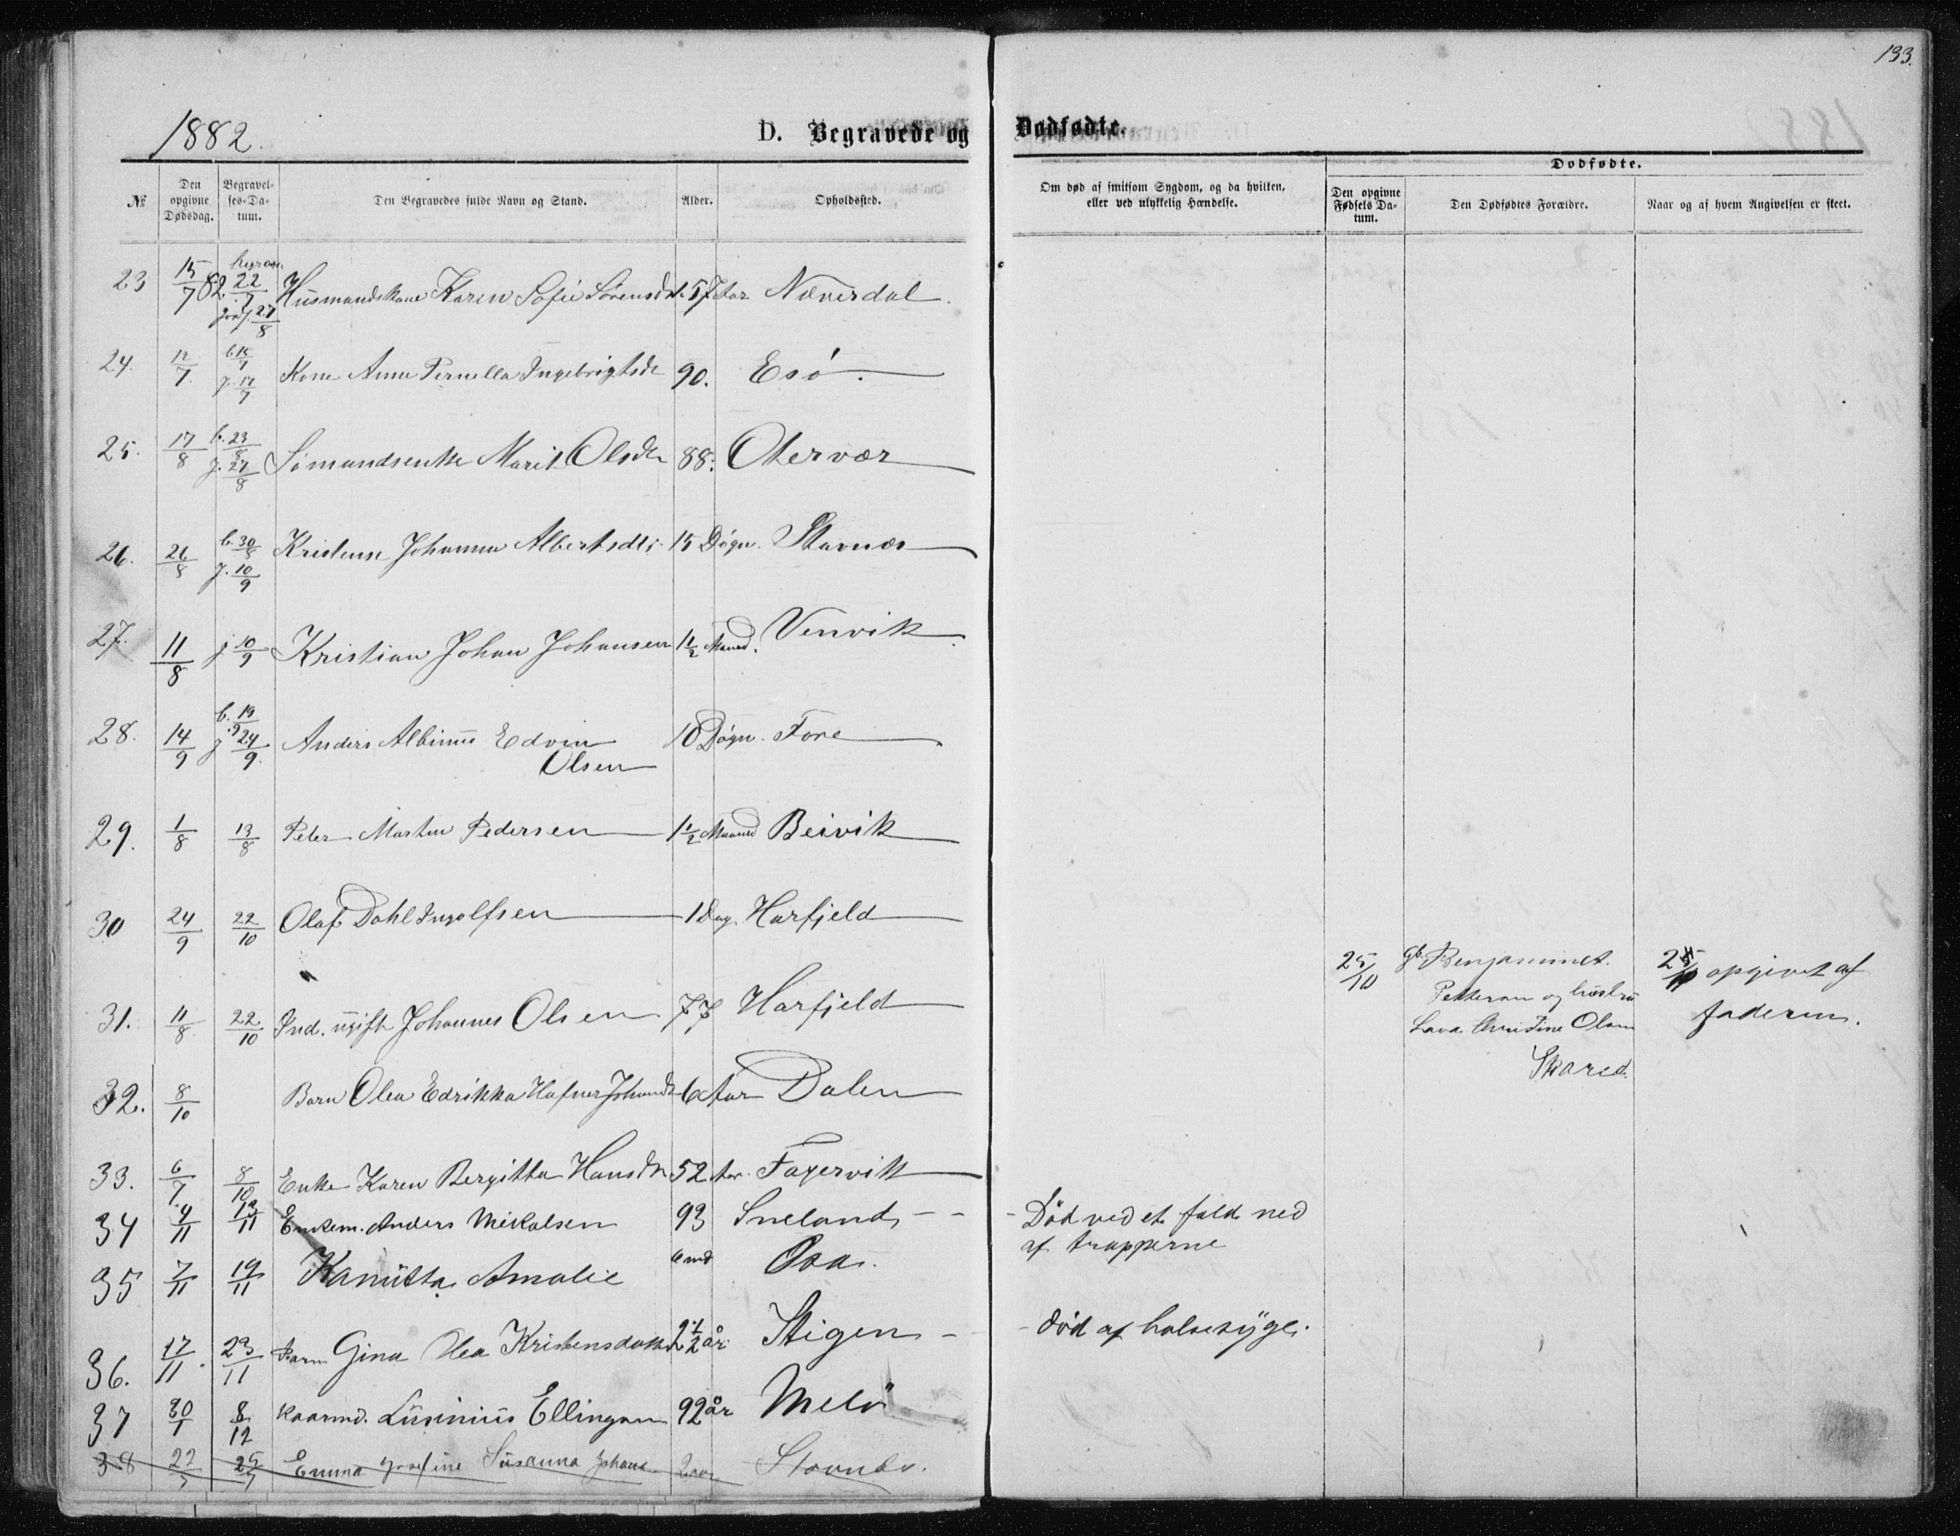 133.
1882.
D. Begravede og Dødfødte.
Dødfødte.
№
Den opgivne Dødsdag.
Begravelses-Datum.
Den Begravedes fulde Navn og Stand.
Alder.
Opholdssted.
Om død af smitsom Sygdom, og da hvilken, eller ved ulykkelig Hændelse.
Den opgivne Fødsels Datum.
Den Dødfødtes Forældre.
Naar og af hvem Angivelsen er skeet.
23 15/7 82 22/7 27/8 Husmandskone Karen Sofie Sørensdt. 57 Aar Næverdal.
24. 12/7. b. 15/7 j. 17/7 Kone Anne Pernella Ingebrigtsdt 90. Esø.
25. 17/8 b. 23/8 j. 27/8 Sømandsenke Marit Olsdtr 88. Otervær
26. 26/8 b. 30/8 j. 10/9 Kristense Johanna Albertsdtr. 15 Døgn. Stavnæs
27. 11/8 j 10/9 Kristian Johan Johansen 1 1/2 Maaned. Venvik
28. 14/9 b. 19/9 j 24/9. Anders Albinus Edvin Olsen 10 Døgn. Fore
29. 1/8 13/8 Peter Martin Pedersen 1 1/2 Maaned Beivik
30 24/9 22/10 Olaf Dahl Ingolfsen 1 Dag Harfjeld
31. 11/8 22/10 Ind. ugift Johannes Olsen 77 Harfjeld
25/10 gb. Benjaminet.
Petterson og hustru
Lava Christine Olsen
Skared.
25/10 opgivet af
faderen.
32. 8/10 Barn Olea Edrikka Hafner Johansdt 6 Aar Dalen
33. 6/7. 8/10 Enke Karen Bergitta Hansdtr 52 Aar. Fagervik
34 4/11 12/11 Enkem. Anders Mikalsen 93 Sneland - Død ved et fald ned
af trapperne
35 7/11 19/11 Kanutta Amalie 6 md Osa.
36. 17/11. 23/11 Barn Gina Olea Kristensdatter 2 1/2 år Stigen - død af halsesyge.
37 30/1 8/12 Kaarmd. Lusinius Ellingsen 92 år Melø
38 22/7 25/7 Emma Josefine Susanna Johans 2 aar Stavnes.